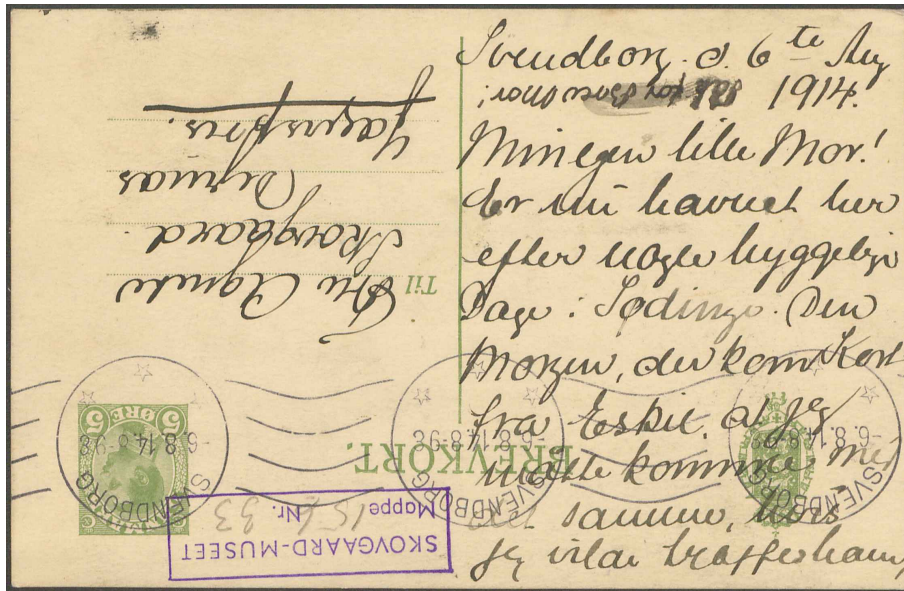 Svendborg. d. 6te Aug
1914.
Min egen lille Mor!
Er nu havnet her
efter nogle hyggelige
Dage i Sødinge. Den
Morgen, der kom Kort
fra Eskil, at jeg
maatte komme med
det samme, hvis
jeg vilde træffe ham,
BREVKORT.
Til Fru Agnete
Skovgaard
Dejrnæs
Jægerspris.
5 ØRE 5
SVENDBORG
-6.8.14.8-9E
SVENDBORG
-6.8.14.8-9E
SVENDBORG
-6.8.14.8-9E
SKOVGAARD-MUSEET
Mappe 15
Nr. 33